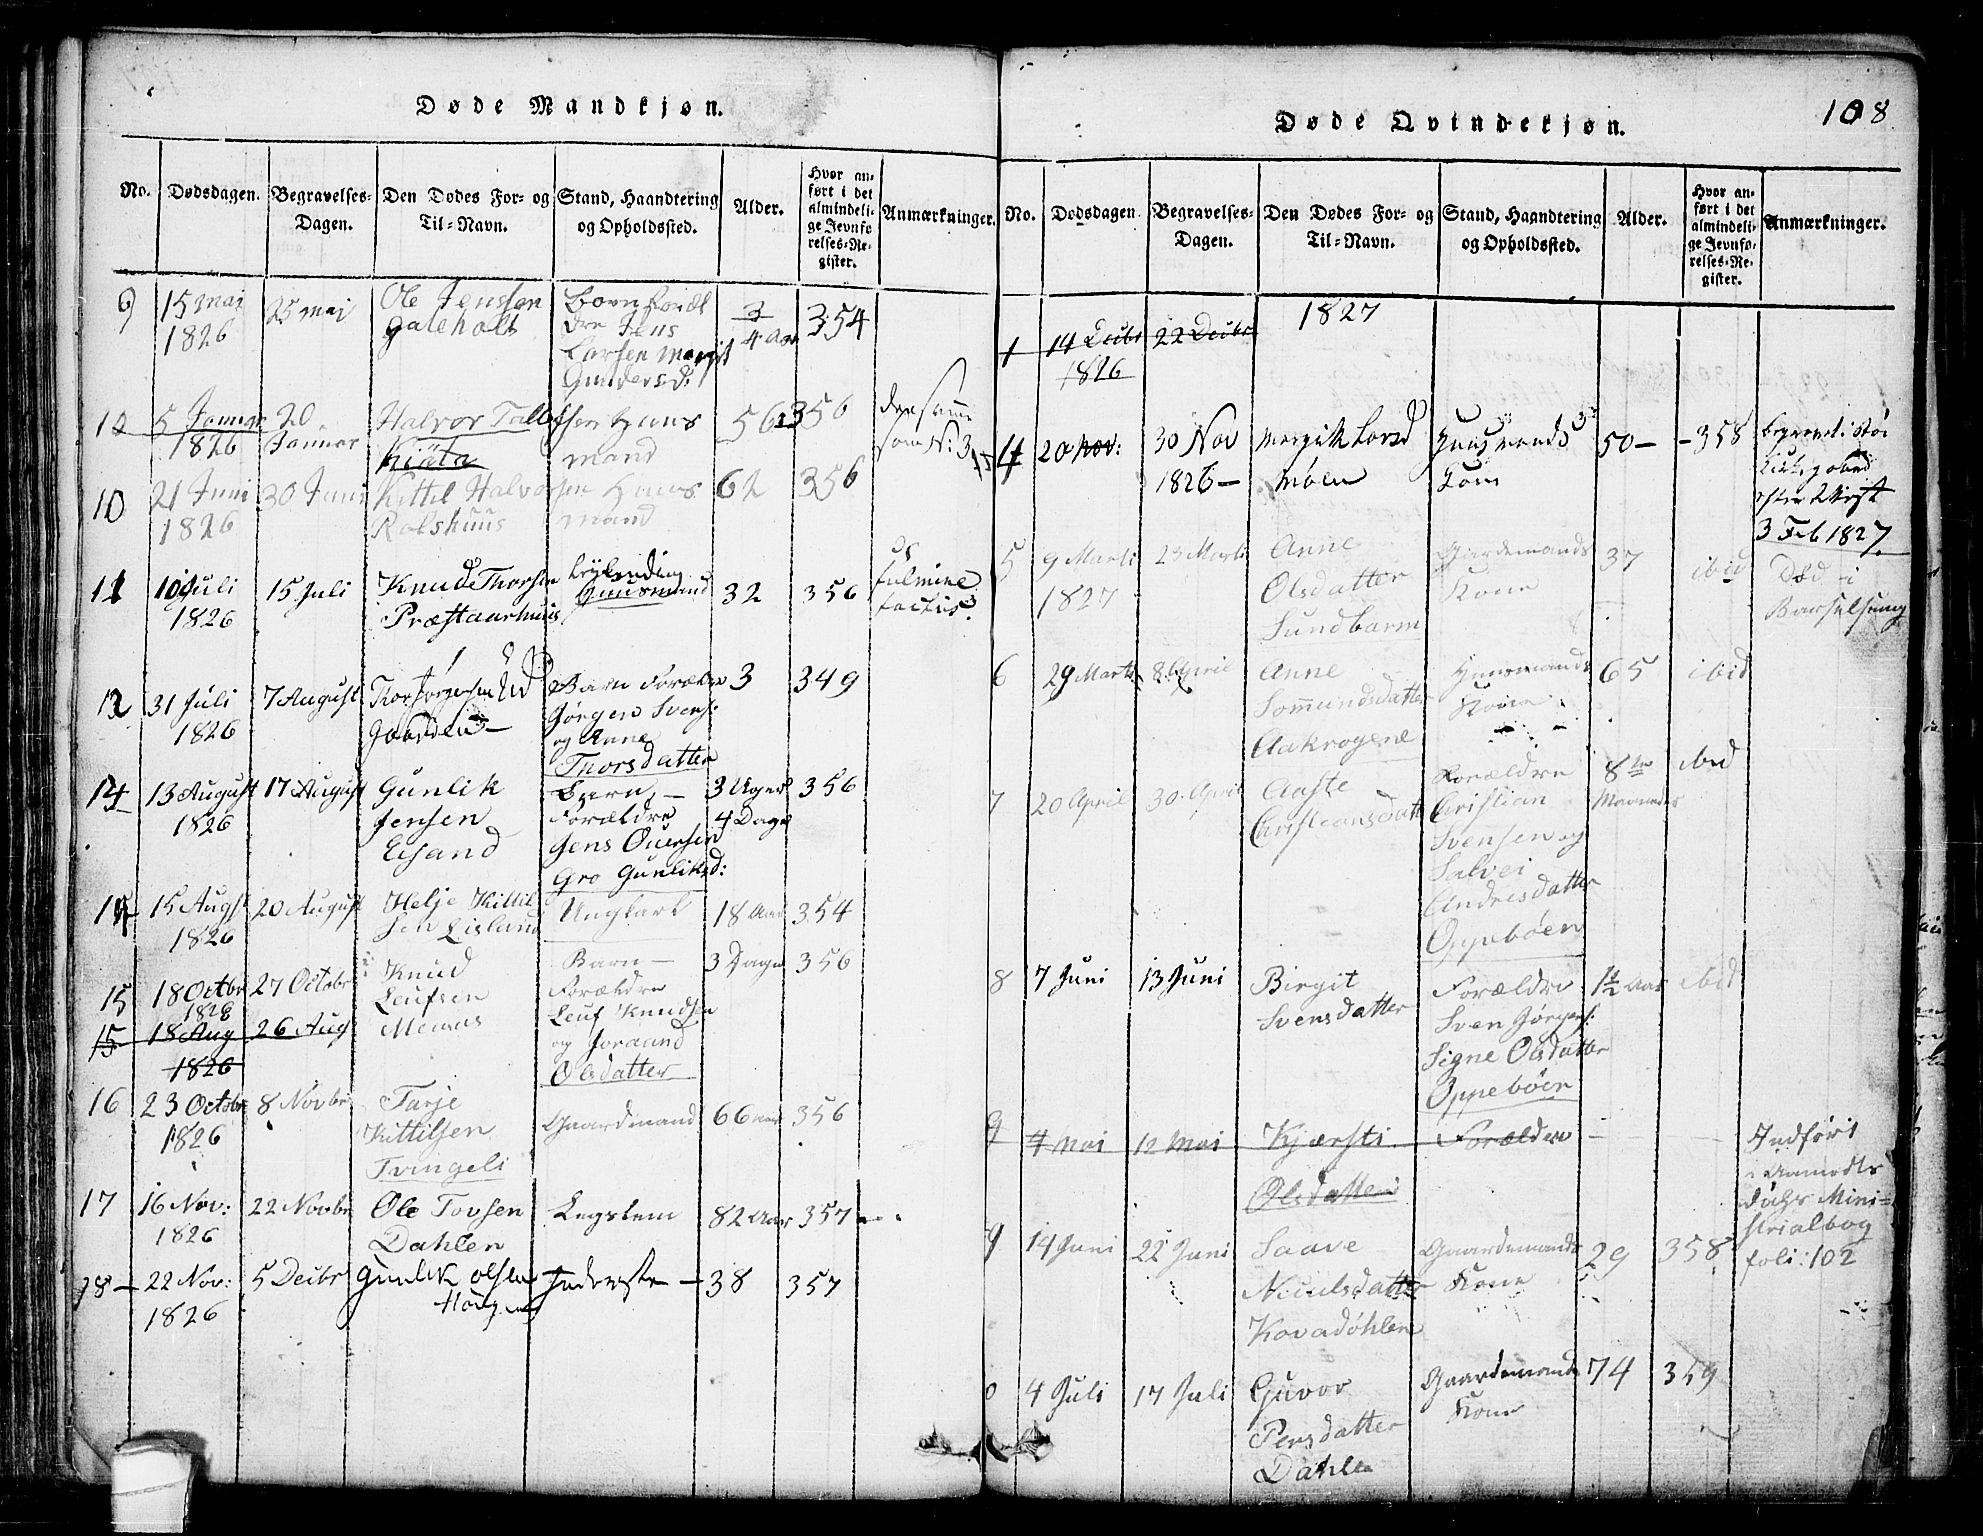 Døde Mandkjøn.
No.
Dødsdagen.
Begravelses-
Dagen.
Den Dødes For- og
Til-Navn.
Stand, Haandtering
og Opholdssted.
Alder.
Hvor an-
ført i det
almindeli-
ge Jevnfø-
relses-Re-
gister.
Anmærkninger.
9 15 mai 25 mai Ole Jenssen Barn foræl 3 354
1826 galeholt dre Jens 4 Aar
Larsen Margit
Gundersd:
10 5 Januar 20 Halvor Tallefsen Huus 56 356 den samme
1826 Januar Kiøta mand som N: 3
10 21 Juni 30 Juni Kittel Halvorsen Huus 62 356
1826 Rolshuus mand
11 10 Juli 15 Juli Knud Thorsen 32 356 fulmine
1826 Præstaarhuus Huusmand tactus
12 31 Juli 7 August Thor Jørgensen Barn Forældre 3 349
1826 Jørgen Svens:
og Anne
Thorsdatter
14 13 August 17 August Gunlik Barn — 3 Uger 356
1826 Jensen Forældre 4 Dage
Eisand Jens
Gro Gunliksd:
14 15 Augst 20 August Helje Kittil Ungkarl 18 Aar 354
1826 sen Lisland
15 18 Octbr 27 Octobr Knud Barn — 3 Dage 356
1826 Leufsen Forældre
15 18 Aug 26 Aug: Leuf Knudsen
1826 og Joraand
Olsdatter
16 23 Octobr 8 Novbr Tarje Gaardmand 66 aar 356
1826 Kittilsen
Tvingeli
17 16 Nov: 22 Novbr Ole Tovsen Legslem 82 Aar 357
1826 Dahlen
18 — 22 Nov: 5 Decbr Gunlik Olsen Inderste — 38 357
1826
Døde Qvindekjøn.
108
No.
Dødsdagen
Begravelses-
Dagen.
Den Dødes For- og
Til-Navn.
Stand, Haandtering
og Opholdssted.
Alder.
Hvor an-
ført i det
almindeli-
ge Jevnfø-
relses-Re-
gister.
Anmærkninger.
1827
1 14 Decbr 22 Decbr
1826
4 20 Nov: 30 Nov Huusmands 50 — 358 begravet i
1826 — Møen Kone
3 Feb 1827
5 9 Marti 23 Marti Anne Gardemands 37 ibid Død i
1827 Olsdatter Kone Barselseng
Sundbarm
6 29 Marti 8 April Anne Huusmands 65 ibid
Sommundsdatter Kone
Aakrogene
7 20 April 30 April Aaste Forældre 8te ibid
Christiansdatt Christian Maaneder
Svensen og
Salvei
Andresdatter
Oppebøen
8 7 Juni 13 Juni Birgit Forældre 1½ Aar ibid
Svensdatter Sven Jørgens:
Signe Olsdatter
Oppebøen
9 4 Mai 12 Mai Kjærsti Forældre — Indført
Olsdatter i Aamodts
Mini-
strialbog
9 14 Juni 22 Juni Saave Gaardemands 29 358 foli: 102
Niculsdatter Kone
Kovadøhlen
0 4 Juli 17 Juli Guvor Gaardemands 74 359
Persdatter Kone
Dahle